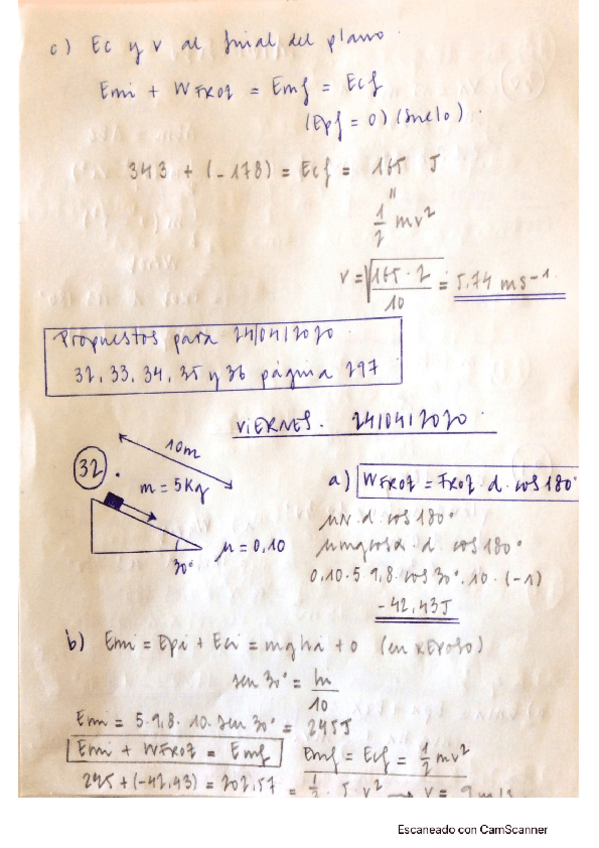 c) Ec y v al final del plano.
Emi + WFROZ = Emf = Ecf
(Epf = 0) (suelo).
343 + (-178) = Ecf = 165 J
"
1/2 mv²
v = √(165·2/10) = 5,74 ms⁻¹.
Propuestos para 24/04/2020.
32, 33, 34, 35 y 36 página 297
VIERNES. 24/04/2020.
10m
32.
m = 5Kg
μ = 0,10
30°
a) WFROZ = FROZ · d · cos 180°
μN · d · cos 180°
μmgcosα · d · cos 180°
0,10·5 9,8·cos 30°·10·(-1)
-42,43J
b) Emi = Epi + Eci = mghi + 0 (en REPOSO)
sen 30° = hi/10
Emi = 5·9,8·10·sen 30° = 245J
Emi + WFROZ = Emf Emf = Ecf = 1/2 mv²
245+(-42,43) = 202,57 = 1/2 · 5 v² → v = 9 m/s
Escaneado con CamScanner